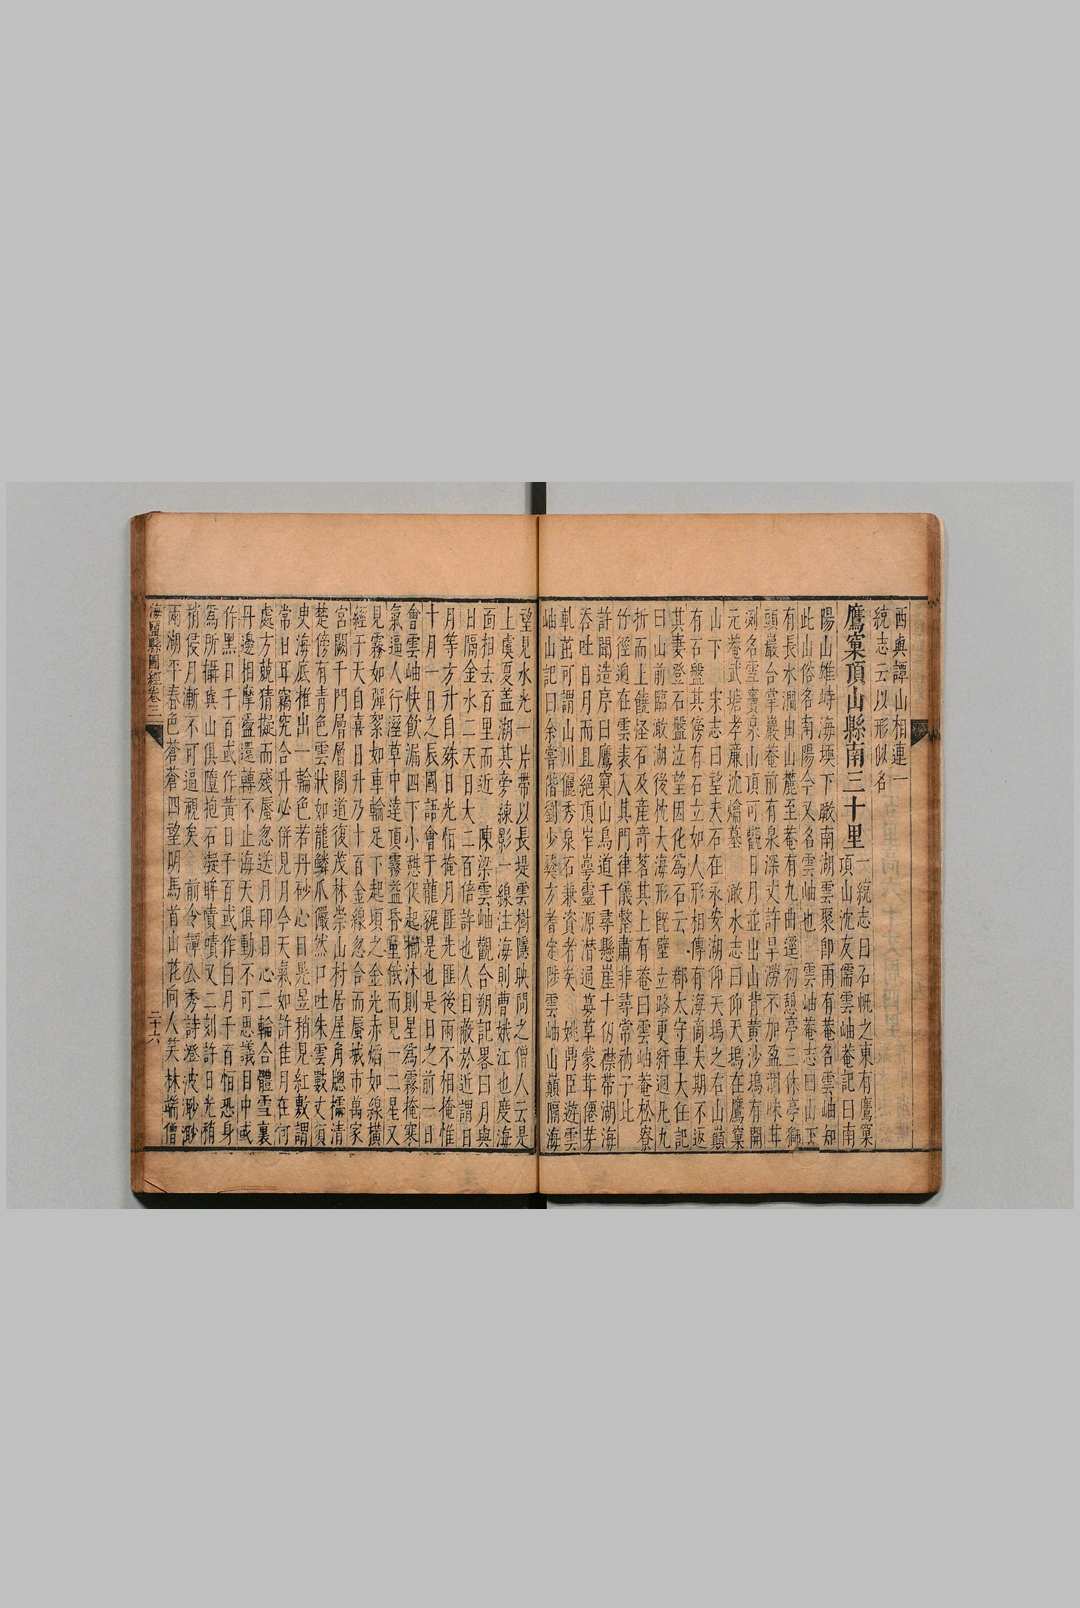 西與譚山相連一
統志云以形似名
鷹窠頂山縣南三十里
一統志曰石帆之東有鷹窠
頂山沈友儒雲岫菴記曰南
陽山雄峙海堧下瞰南湖雲聚卽雨有菴名雲岫知
此山俗名南陽今又名雲岫也 雲岫菴志曰山下
有長水澗由山麓至菴有九曲逕初憩亭三休亭獅
頭巖合掌巖菴前有泉深丈許旱澇不加盈涸味甘
冽名雪竇泉山頂可觀日月並出山背黄沙塢有開
元菴武塘孝廉沈爚墓 澉水志曰仰天塢在鷹窠
山下 宋志曰望夫石在永安湖仰天塢之右山巔
有石盤其傍有石立如人形相傳有海商失期不返
其妻登石盤泣望因化爲石云 郡太守車大任記
曰山前臨澉湖後枕大海形旣壁立路更紆迴凡九
折而上饒怪石及産奇茗其上有菴曰雲岫菴松寮
竹徑遍在雲表入其門律儀整肅非尋常衲子比
許聞造序曰鷹窠山鳥道千尋懸崖十仞襟帶湖海
吞吐日月而且絕頂岝崿靈源潛通蓂草蒙茸僊芽
乳茁可謂山川儷秀泉石兼資者矣 姚鼎臣遊雲
岫山記曰余嘗偕劉少巍方耆定陟雲岫山巔隔海
望見水光一片帶以長堤雲樹隱映問之僧人云是
上虞夏蓋湖其旁練影一線注海則曹娥江也度海
面相去百里而近 陳梁雲岫觀合朔記畧曰月與
日隔金水二天日大二百倍許也人目蔽於近謂日
月等方升自殊日光恒掩月匪先匪後兩不相掩惟
十月一日之辰國語會于龍𧱓是也是日之前一日
會雲岫快飲漏四下小憩促起櫛沐則星爲霧掩寒
氣逼人行溼草中達頂霧益昏量俄而見一二星又
見霧如彈絮如車輪足下起頃之金光赤熖如線橫
經于天自喜日升乃十百金線忽合而蜃城市萬家
宮闕千門層層閣道復茂林崇山村居屋角牕櫺清
楚傍有青色雲狀如龍鱗爪儼然口吐朱雲數丈須
臾海底推出一輪色若丹砂心日晃昱稍見紅敷謂
常日耳竊究合丹必併見月今天氣如許隹月在何
處方競猜擬而殘蜃忽送月印日心二輪合體雪裏
丹邊相摩盪還轉不止海天俱動不可思議目中或
作黑日千百或作黄日千百或作白月千百恒恐身
爲所攝與山俱墮抱石凝眸憒憒又二刻許日光稍
稍侵月漸不可逼視矣 前令譚公秀詩澄波渺渺
兩湖平春色蒼蒼四望明馬首山花向人笑林端僧
海鹽縣圖經卷三
二十六